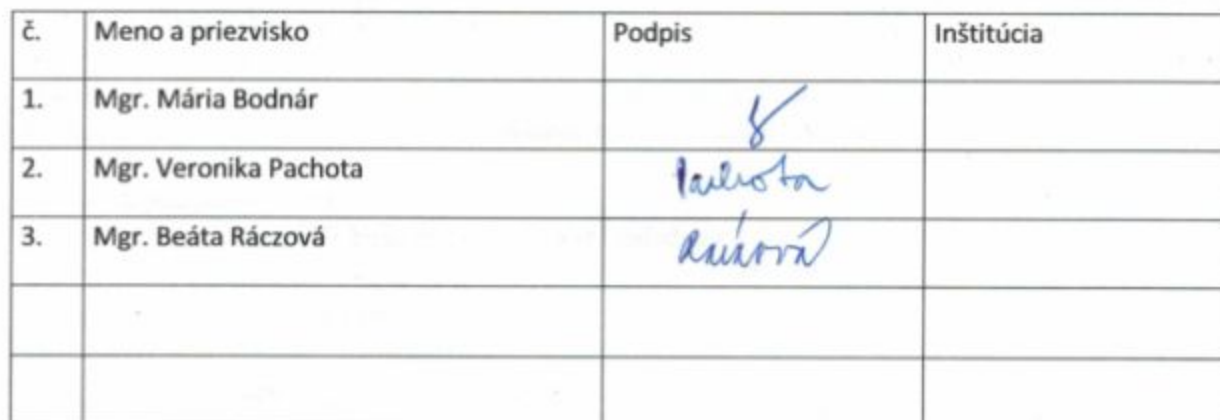 č. Meno a priezvisko Podpis Inštitúcia
1. Mgr. Mária Bodnár
2. Mgr. Veronika Pachota Pachota
3. Mgr. Beáta Ráczová Ráczová